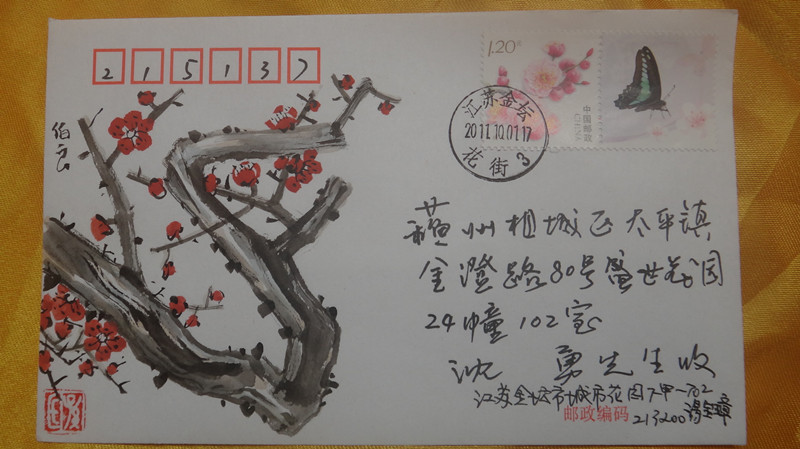 215137
1.20元
中国邮政
CHINA
江苏金坛
2011.10.01.17
花街 3
伯良
蘓州相城区太平镇
金澄路80号盛世花园
24幢102室
沈 勇先生收
江苏金坛市城市花园
702
邮政编码
213200